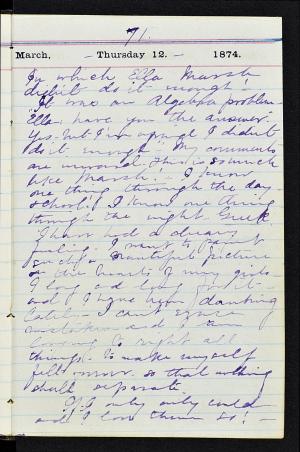 71.
March, - Thursday 12. - 1874.
In which Ella Marsh
didn't do it enough!
"It was an Algebra problem
"Ella, have you the answer.
Yes, but I'm afraid I didn't
do it enough" My comments
are unnecessary This is so much
like Marsh! - I know
one thing through the day
school! I know one thing
through the night, Greek.
I have had a dreary
feeling. I want to paint
such a beautiful picture
in the hearts of my girls
I long and long for it -
and I have been daubing
lately - I can't erase
and I am
longing to right all
things. To make myself
so that nothing
shall separate
If I only only could
and I love them so! -